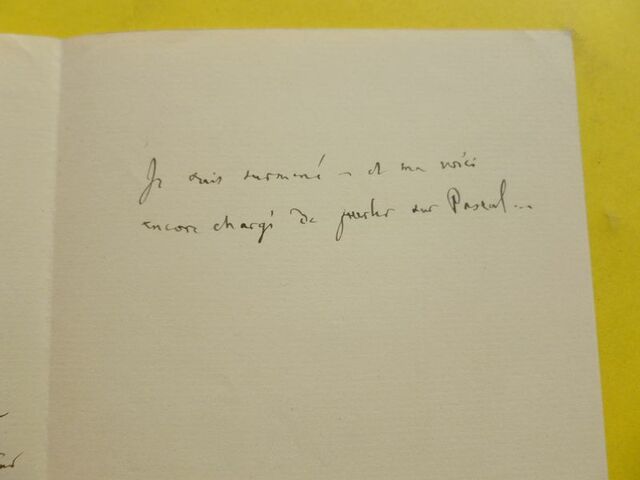 Je suis surmené – et me voici
encore chargé de parler sur Pascal...